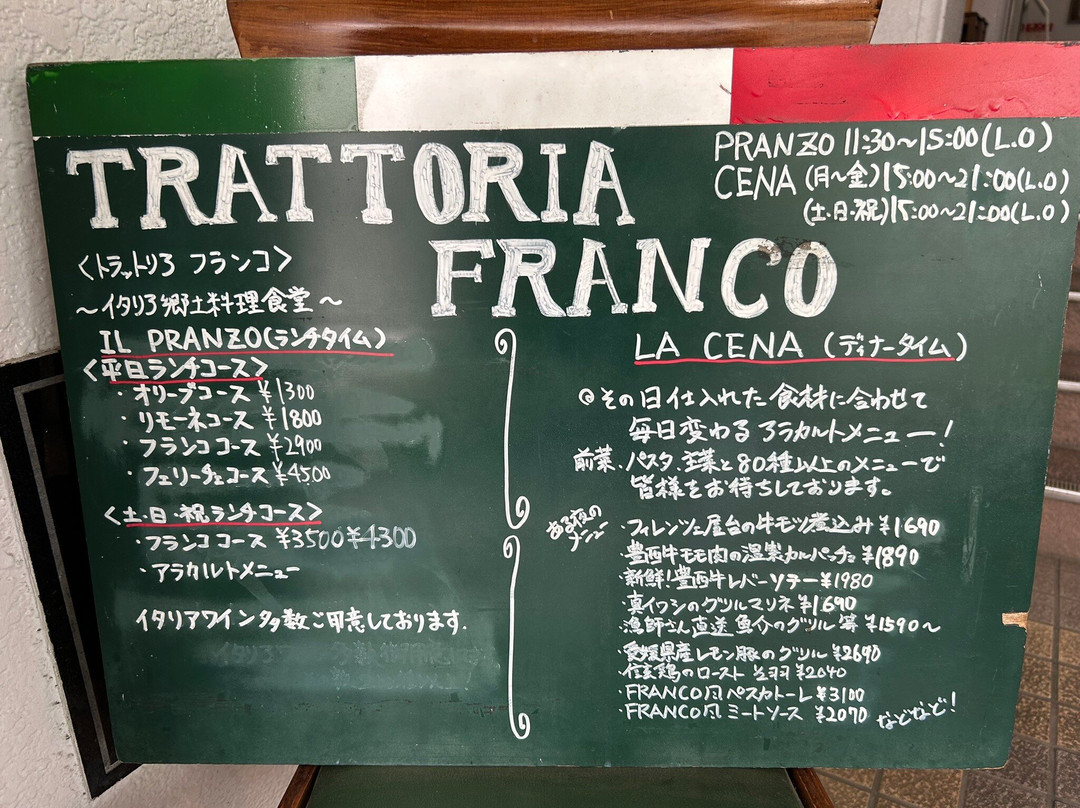 TRATTORIA
FRANCO
PRANZO 11:30～15:00(L.O)
CENA (月～金)15:00～21:00(L.O)
(土・日・祝)15:00～21:00(L.O)
<トラットリア フランコ>
～イタリア郷土料理食堂～
IL PRANZO(ランチタイム)
<平日ランチコース>
・オリーブコース ¥1300
・リモーネコース ¥1800
・フランココース ¥2900
・フェリーチェコース ¥4500
<土・日・祝ランチコース>
・フランココース ¥3500 ¥4300
・アラカルトメニュー
イタリアワイン多数ご用意しております.
LA CENA (ディナータイム)
◎その日仕入れた食材に合わせて
毎日変わるアラカルトメニュー!
前菜、パスタ、主菜と80種以上のメニューで
皆様をお待ちしております。
ある夜の
メニュー
・フィレンツェ屋台の牛モツ煮込み ¥1690
・豊西牛モモ肉の温製カルパッチョ ¥1890
・新鮮!豊西牛レバーソテー ¥1980
・真イワシのグリルマリネ ¥1690
・漁師さん直送魚介のグリル 等 ¥1590～
・愛媛県産レモン豚のグリル ¥2690
・信玄鶏のロースト 半羽 ¥2040
・FRANCO風ペスカトーレ ¥3100
・FRANCO風ミートソース ¥2070
などなど!